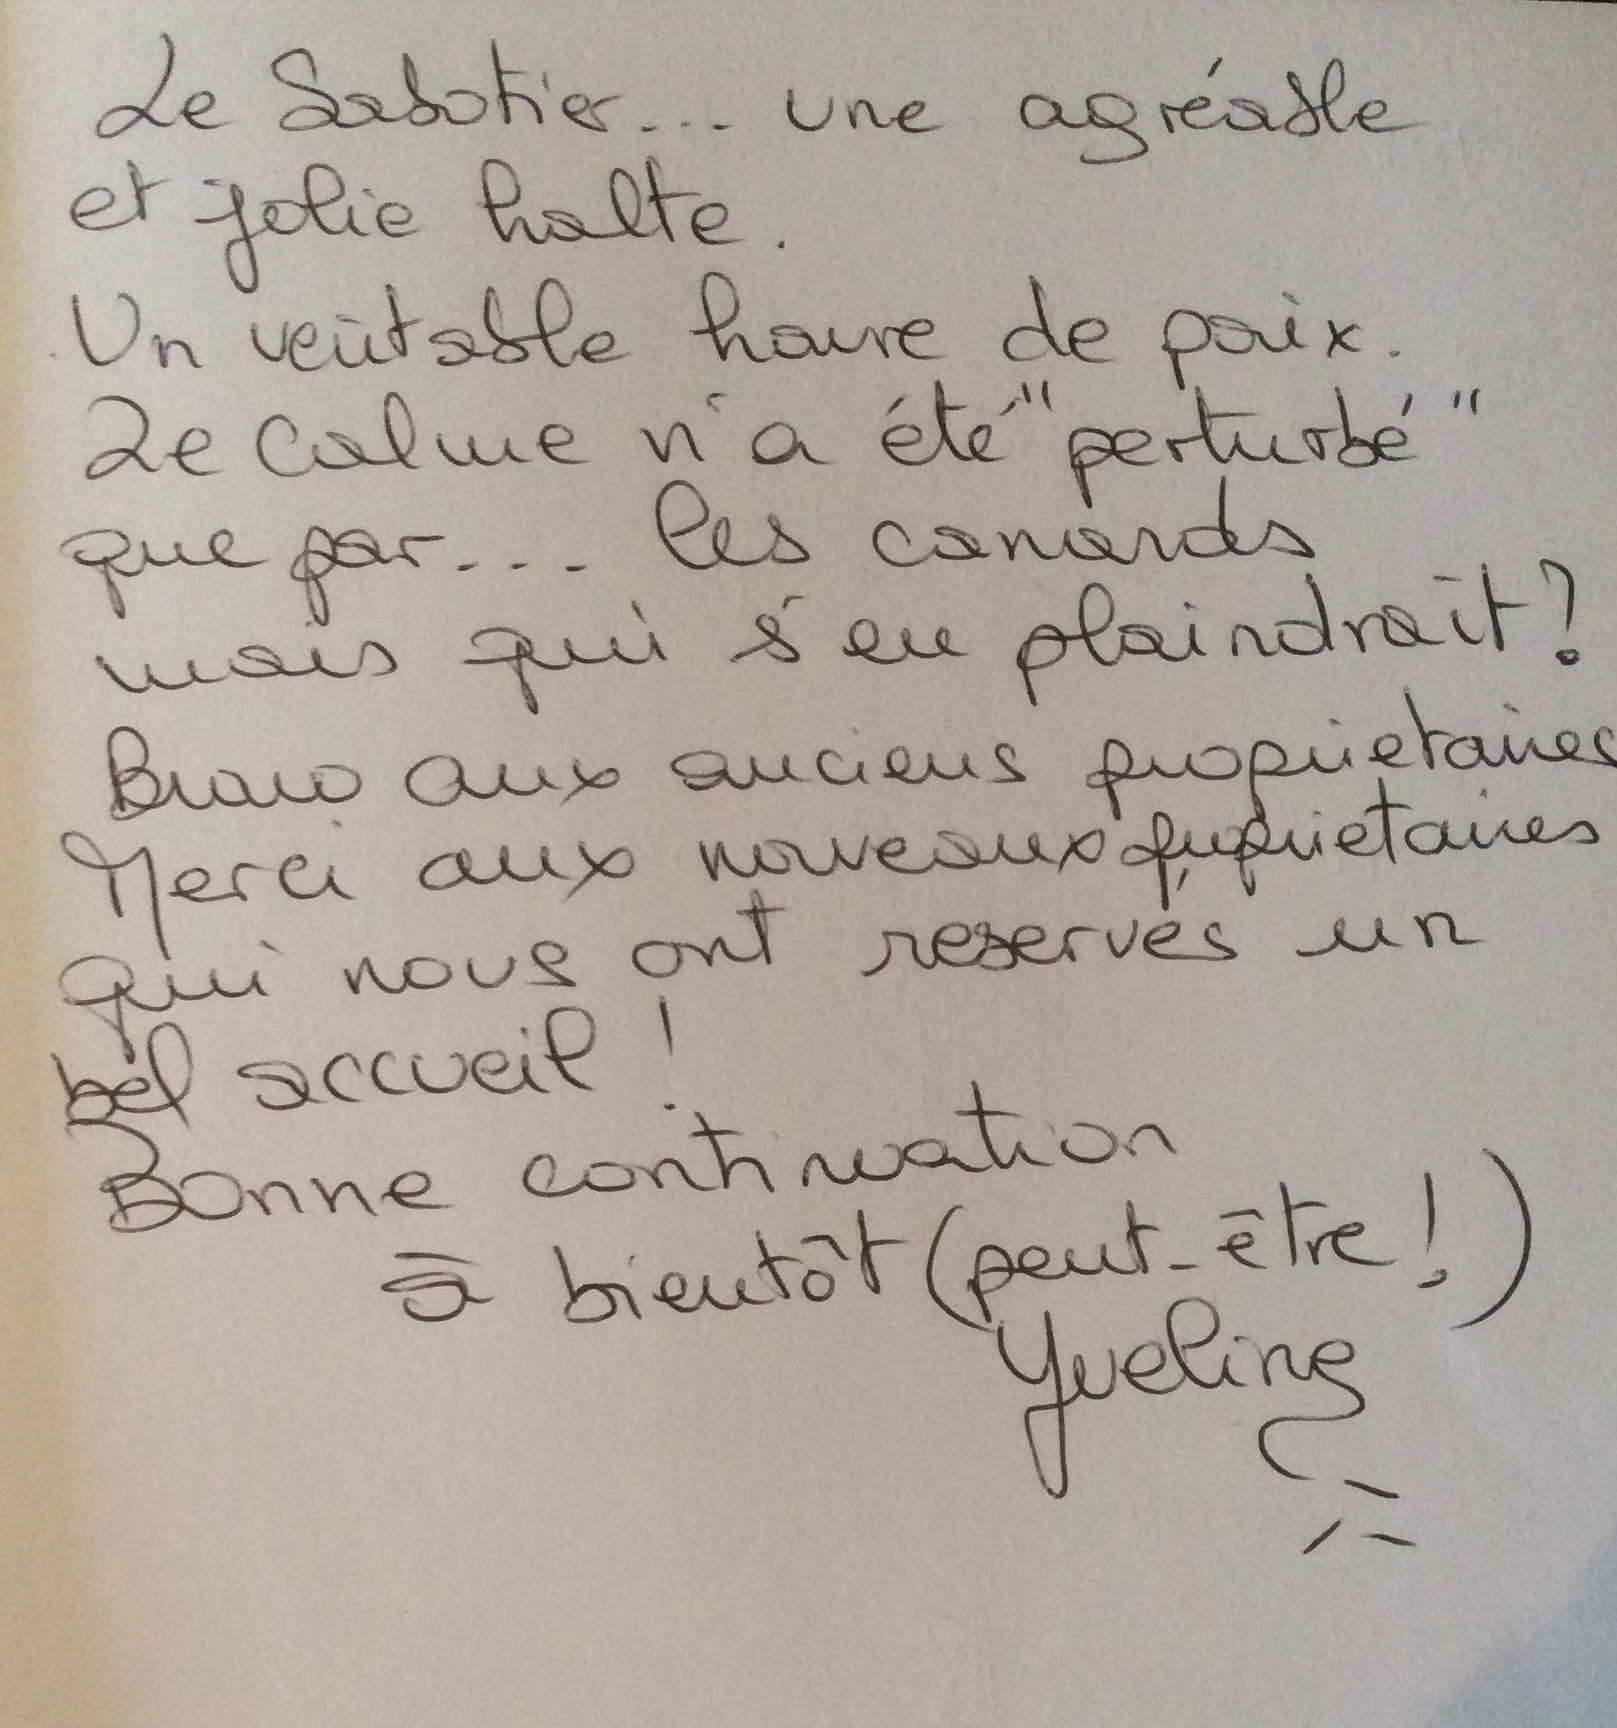 Le Sabotier... une agréable
et jolie halte.
Un véritable havre de paix.
Le calme n'a été "perturbé"
que par... les canards
mais qui s'en plaindrait?
Bravo aux anciens propriétaires
Merci aux nouveaux propriétaires
qui nous ont reservés un
bel accueil!
Bonne continuation
à bientôt (peut-être!)
Yveline